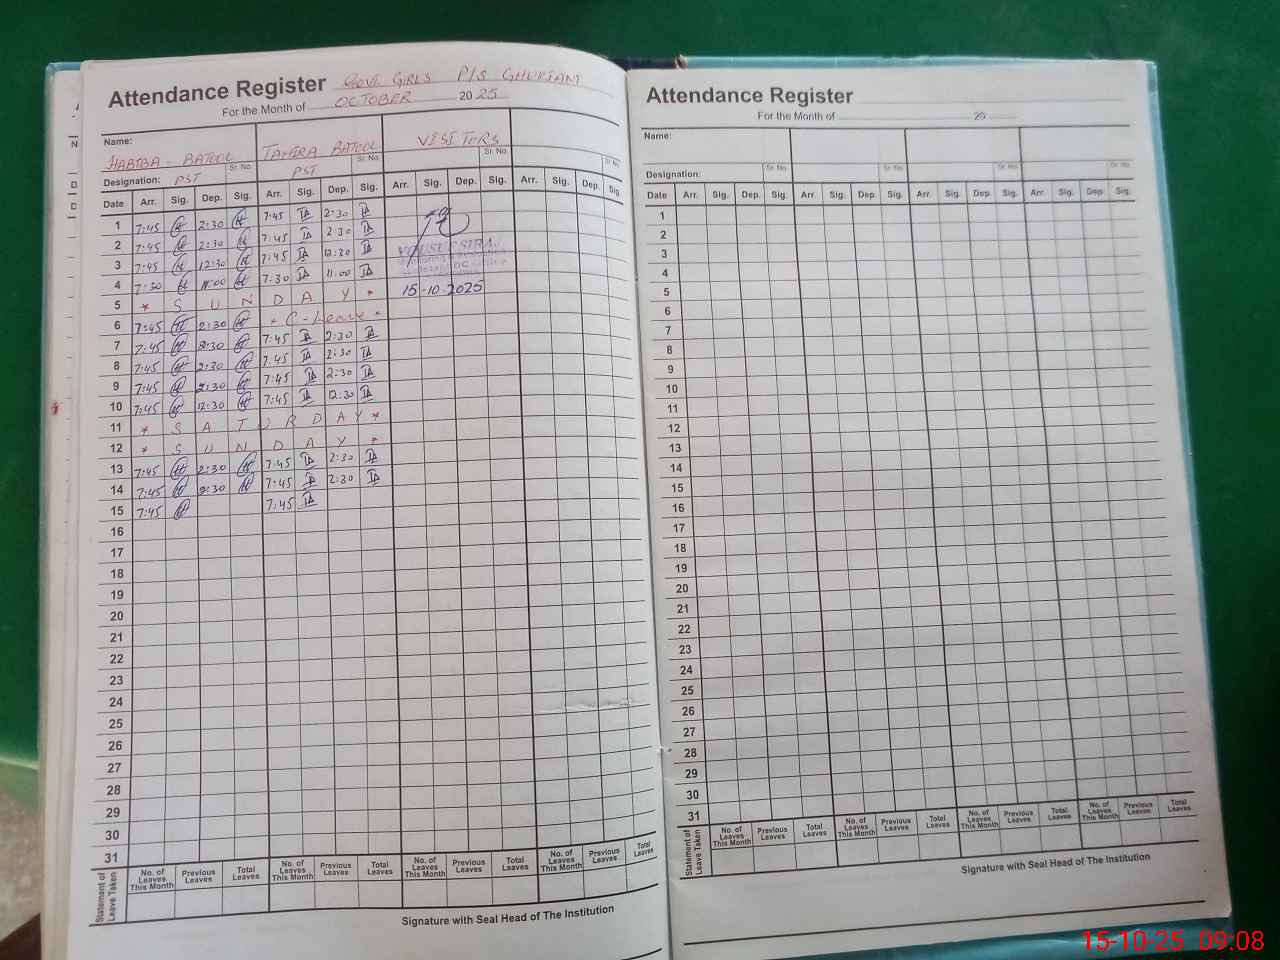 Attendance Register GOVT GIRLS P/S GHURIANI
For the Month of OCTOBER 20 25
Name: HABIBA - BATOOL TAHIRA BATOOL VISITORS
Sr. No. Sr. No. Sr. No. Sr. No.
Designation: PST PST
Date Arr. Sig. Dep. Sig. Arr. Sig. Dep. Sig. Arr. Sig. Dep. Sig. Arr. Sig. Dep. Sig.
1 7:45 2:30 7:45 2:30
2 7:45 2:30 7:45 2:30
3 7:45 12:30 7:45 12:30
YOUSUF SIRAJ
4 7:30 11:00 7:30 11:00
5 * S U N D A Y * 15-10-2025
6 7:45 2:30 * C-Leave *
7 7:45 2:30 7:45 2:30
8 7:45 2:30 7:45 2:30
9 7:45 2:30 7:45 2:30
10 7:45 12:30 7:45 12:30
11 * S A T U R D A Y *
12 * S U N D A Y *
13 7:45 2:30 7:45 2:30
14 7:45 2:30 7:45 2:30
15 7:45 7:45
16
17
18
19
20
21
22
23
24
25
26
27
28
29
30
31
Statement of Leave Taken
No. of Leaves This Month Previous Leaves Total Leaves No. of Leaves This Month Previous Leaves Total Leaves No. of Leaves This Month Previous Leaves Total Leaves No. of Leaves This Month Previous Leaves Total Leaves
Signature with Seal Head of The Institution
Attendance Register
For the Month of 20
Name:
Sr. No. Sr. No. Sr. No. Sr. No.
Designation:
Date Arr. Sig. Dep. Sig. Arr. Sig. Dep. Sig. Arr. Sig. Dep. Sig. Arr. Sig. Dep. Sig.
1
2
3
4
5
6
7
8
9
10
11
12
13
14
15
16
17
18
19
20
21
22
23
24
25
26
27
28
29
30
31
Statement of Leave Taken
No. of Leaves This Month Previous Leaves Total Leaves No. of Leaves This Month Previous Leaves Total Leaves No. of Leaves This Month Previous Leaves Total Leaves No. of Leaves This Month Previous Leaves Total Leaves
Signature with Seal Head of The Institution
15-10-25 09:08